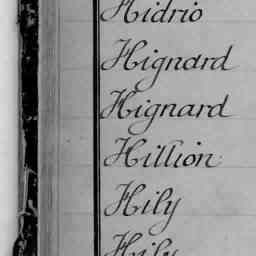 Hidrio
Hignard
Hignard
Hillion
Hily
Hily